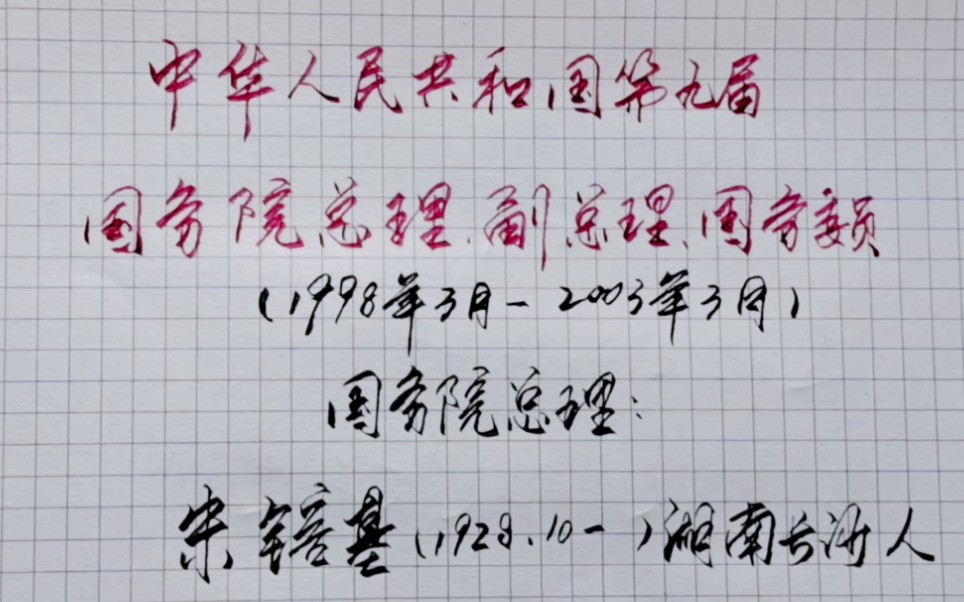 中华人民共和国第九届
国务院总理、副总理、国务委员
(1998年3月-2003年3月)
国务院总理:
朱镕基(1928.10-)湖南长沙人